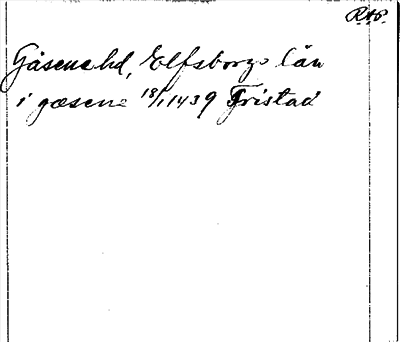 RAP.
Gäsene hd, Elfsborgs län
i gæsene 18/1 1439 Fristad